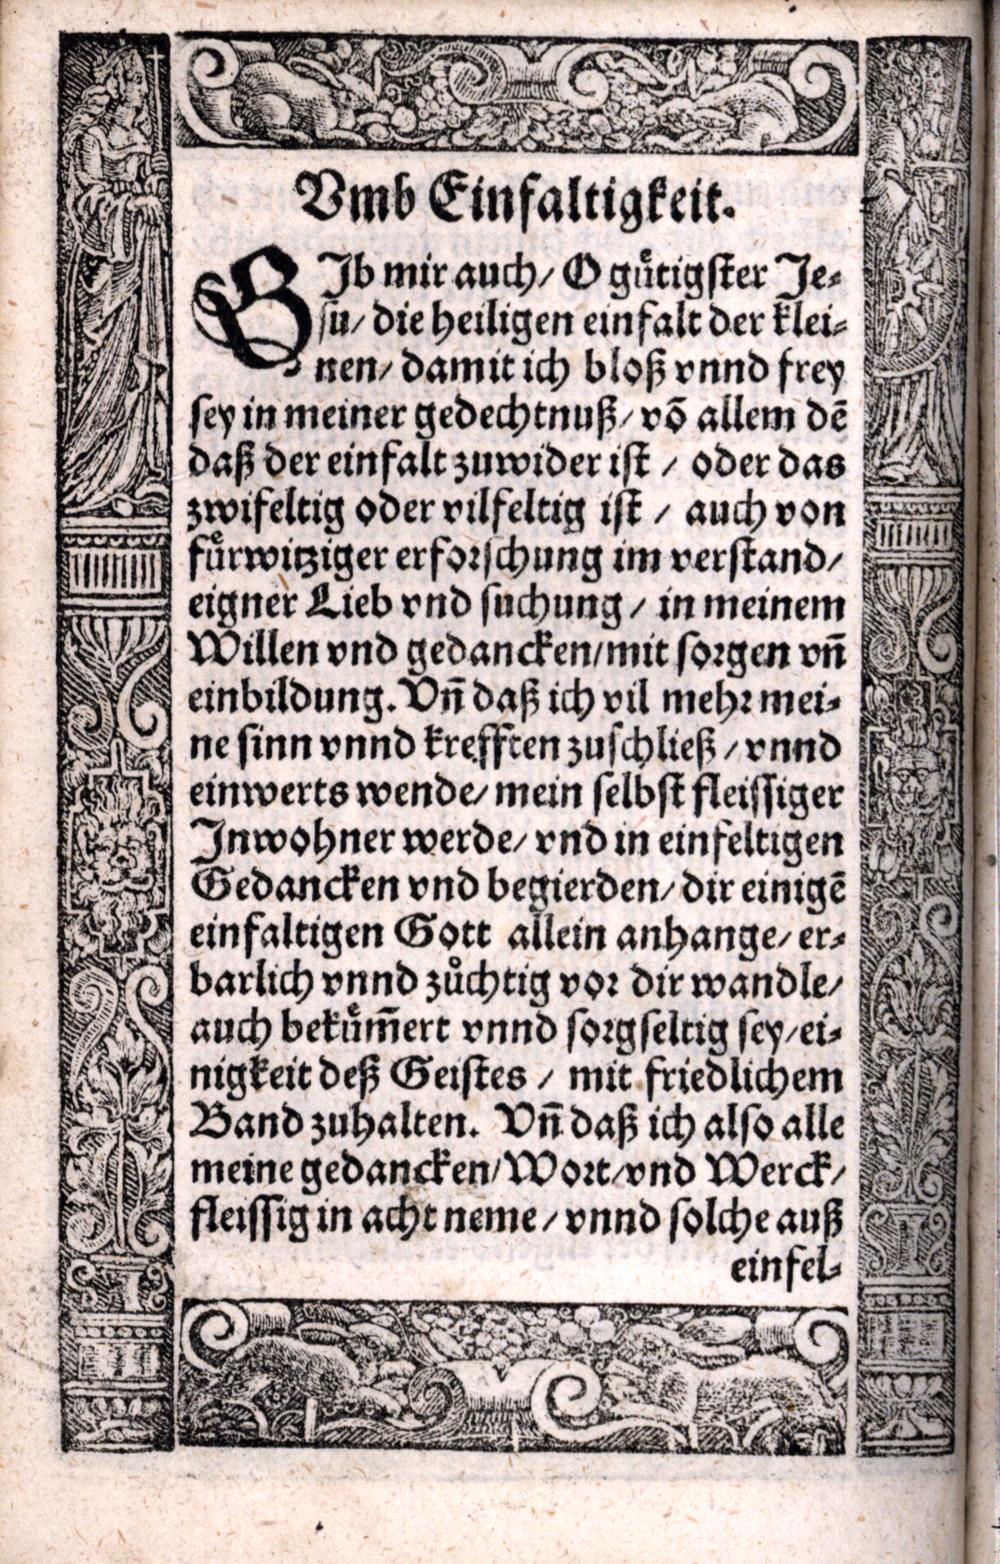 Vmb Einfaltigkeit.
GJb mir auch/ O guͤtigster Je⸗
su/ die heiligen einfalt der klei⸗
nen/ damit ich bloß vnnd frey
sey in meiner gedechtnuß/ võ allem dẽ
daß der einfalt zuwider ist / oder das
zwifeltig oder vilfeltig ist / auch von
fuͤrwitziger erforschung im verstand/
eigner Lieb vnd suchung / in meinem
Willen vnd gedancken/mit sorgen vñ
einbildung. Vñ daß ich vil mehr mei⸗
ne sinn vnnd krefften zuschließ / vnnd
einwerts wende/ mein selbst fleissiger
Jnwohner werde/ vnd in einfeltigen
Gedancken vnd begierden/ dir einigẽ
einfaltigen Gott allein anhange/ er⸗
barlich vnnd zuͤchtig vor dir wandle/
auch bekuͤm̃ert vnnd sorgfeltig sey/ei⸗
nigkeit deß Geistes / mit friedlichem
Band zuhalten. Vñ daß ich also alle
meine gedancken/Wort/vnd Werck/
fleissig in acht neme / vnnd solche auß
einfel⸗